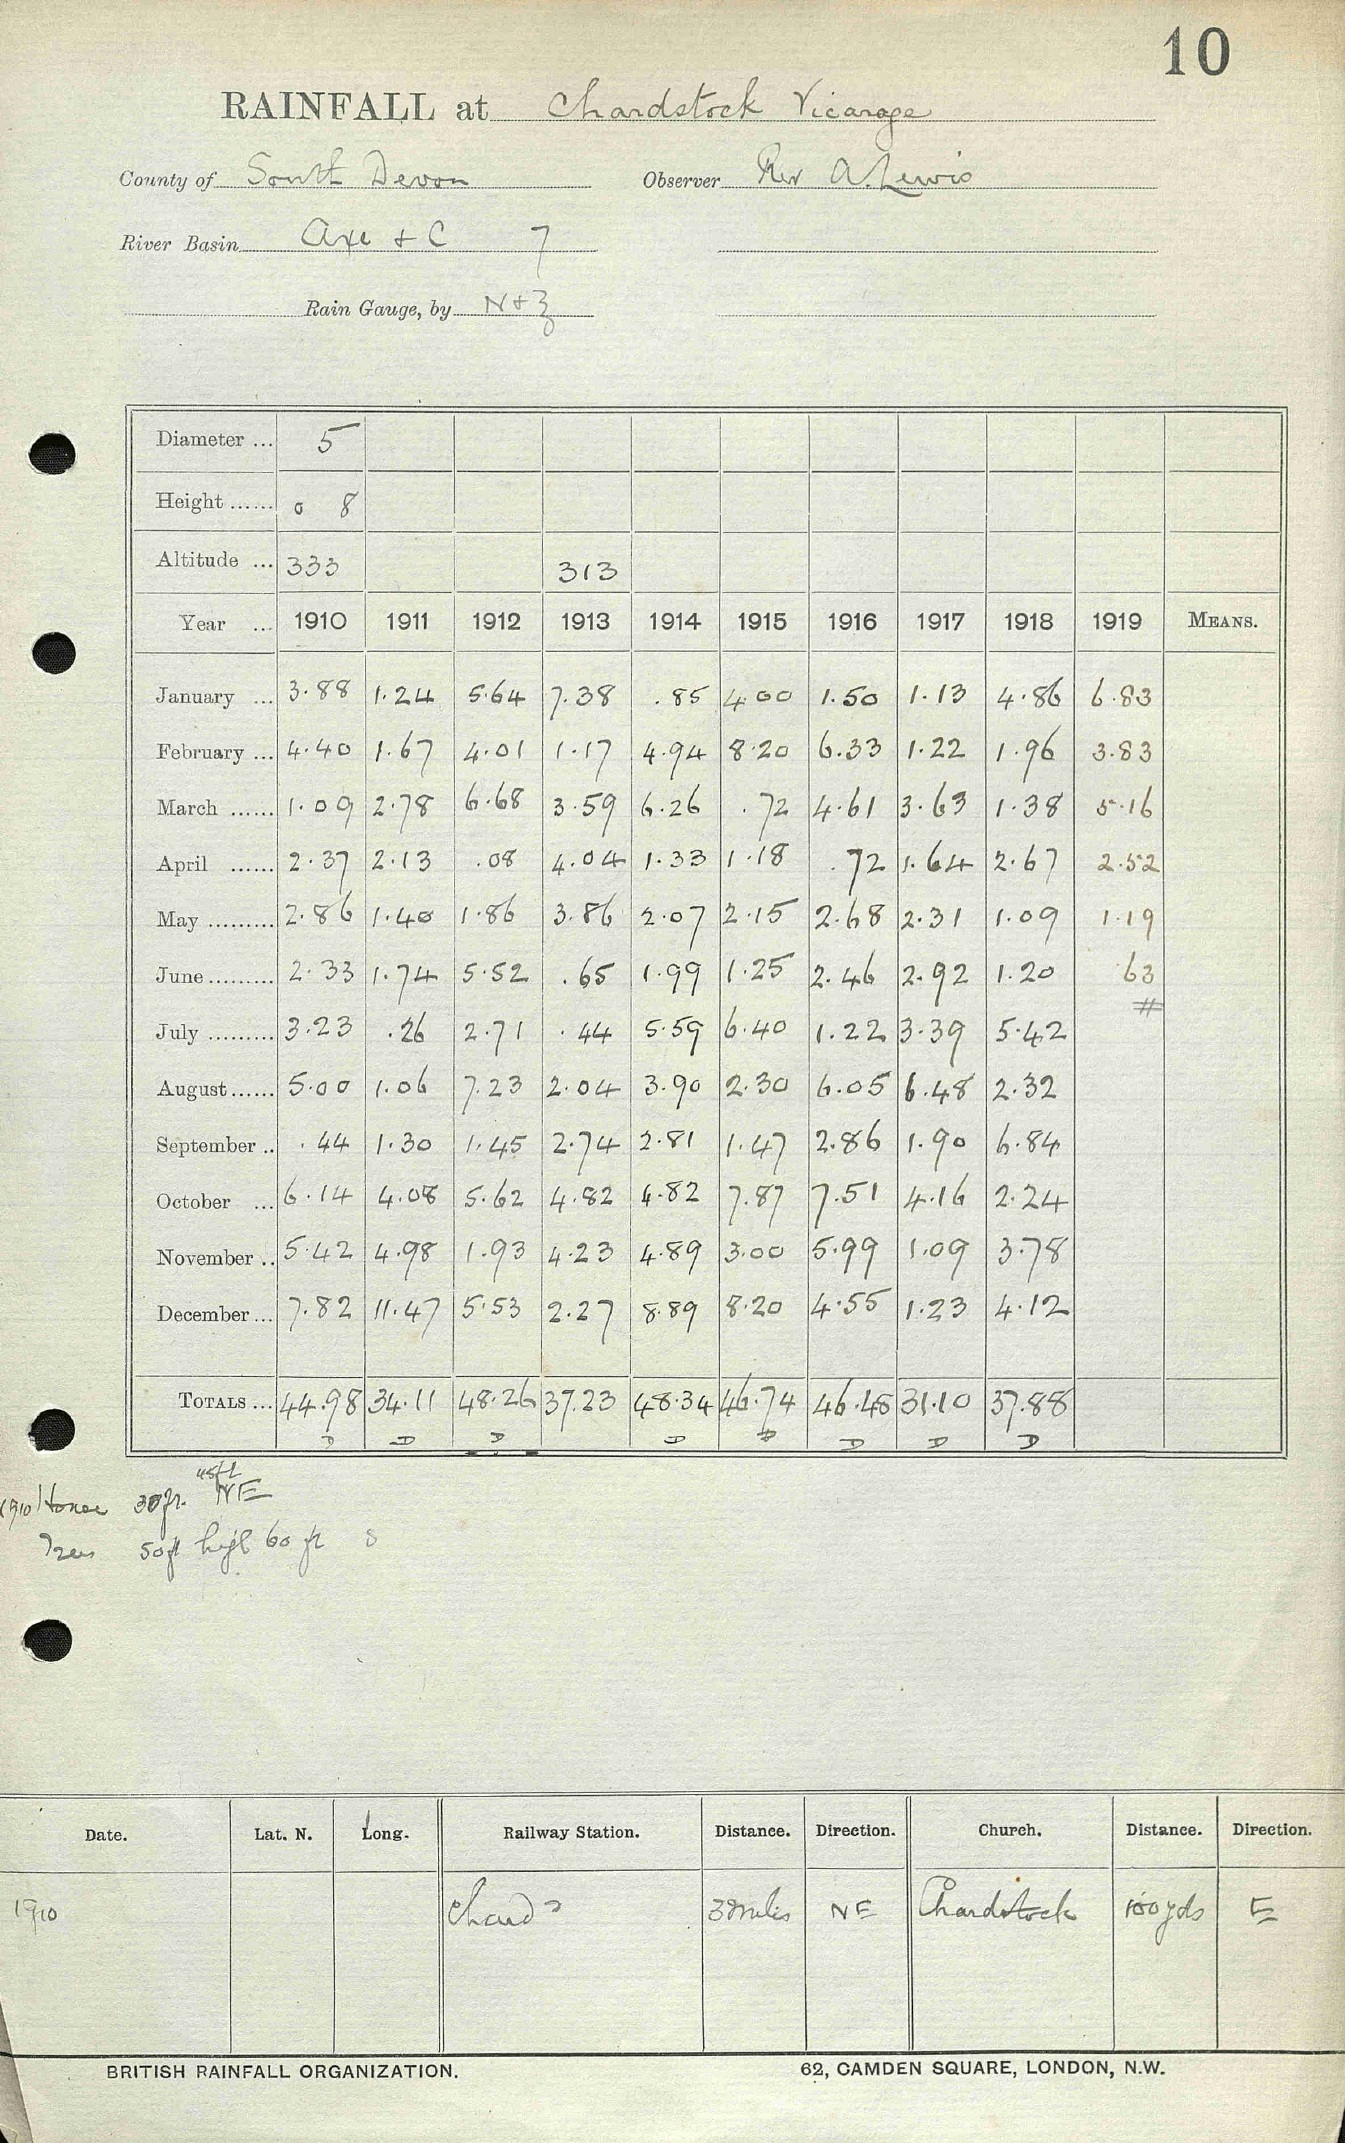 10
RAINFALL at Chardstock Vicarage
County of South Devon Observer Rev A. Lewis
River Basin Axe & C 7
Rain Gauge, by N & Z
Diameter ... 5
Height ...... 0 8
Altitude ... 333 313
Year ... 1910 1911 1912 1913 1914 1915 1916 1917 1918 1919 MEANS.
January ... 3.88 1.24 5.64 7.38 .85 4.00 1.50 1.13 4.86 6.83
February ... 4.40 1.67 4.01 1.17 4.94 8.20 6.33 1.22 1.96 3.83
March ...... 1.09 2.78 6.68 3.59 6.26 .72 4.61 3.63 1.38 5.16
April ...... 2.37 2.13 .08 4.04 1.33 1.18 .72 1.64 2.67 2.52
May ......... 2.86 1.40 1.86 3.86 2.07 2.15 2.68 2.31 1.09 1.19
June ......... 2.33 1.74 5.52 .65 1.99 1.25 2.46 2.92 1.20 .63
July ......... 3.23 .26 2.71 .44 5.59 6.40 1.22 3.39 5.42
August ...... 5.00 1.06 7.23 2.04 3.90 2.30 6.05 6.48 2.32
September .. .44 1.30 1.45 2.74 2.81 1.47 2.86 1.90 6.84
October ... 6.14 4.08 5.62 4.82 4.82 7.87 7.51 4.16 2.24
November .. 5.42 4.98 1.93 4.23 4.89 3.00 5.99 1.09 3.78
December ... 7.82 11.47 5.53 2.27 8.89 8.20 4.55 1.23 4.12
TOTALS ... 44.98 34.11 48.26 37.23 48.34 46.74 46.48 31.10 37.88
D D D D D D D D
45ft
1910 House 30ft. NE
Trees 50ft high 60 ft S
Date. Lat. N. Long. Railway Station. Distance. Direction. Church. Distance. Direction.
1910 Chard 3 miles NE Chardstock 100 yds E
BRITISH RAINFALL ORGANIZATION. 62, CAMDEN SQUARE, LONDON, N.W.